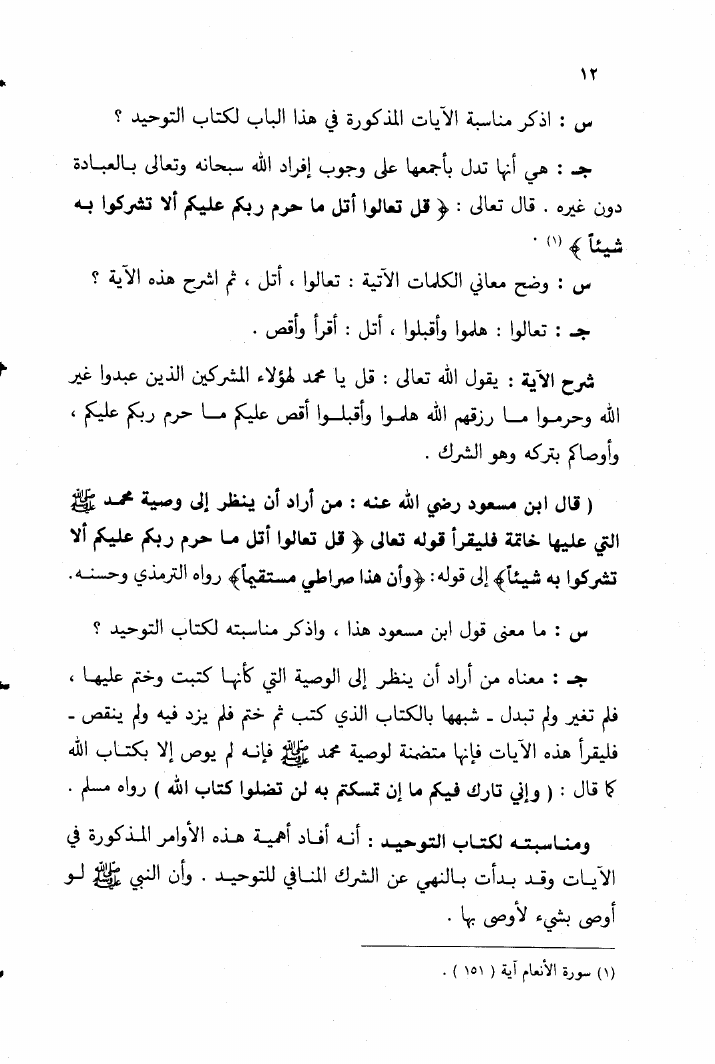 ١٢
س : اذكر مناسبة الآيات المذكورة في هذا الباب لكتاب التوحيد ؟
جـ : هي أنها تدل بأجمعها على وجوب إفراد الله سبحانه وتعالى بالعبادة
دون غيره . قال تعالى : ﴿ قل تعالوا أتل ما حرم ربكم عليكم ألا تشركوا به
شيئاً ﴾ (١) .
س : وضح معاني الكلمات الآتية : تعالوا ، أتل ، ثم اشرح هذه الآية ؟
جـ : تعالوا : هلموا وأقبلوا ، أتل : أقرأ وأقص .
شرح الآية : يقول الله تعالى : قل يا محمد لهؤلاء المشركين الذين عبدوا غير
الله وحرموا مـا رزقهم الله هلموا وأقبلوا أقص عليكم مـا حرم ربكم عليكم ،
وأوصاكم بتركه وهو الشرك .
( قال ابن مسعود رضي الله عنه : من أراد أن ينظر إلى وصية محمد ﷺ
التي عليها خاتمة فليقرأ قوله تعالى ﴿ قل تعالوا أتل ما حرم ربكم عليكم ألا
تشركوا به شيئاً﴾ إلى قوله: ﴿وأن هذا صراطي مستقيماً﴾ رواه الترمذي وحسنه.
س : ما معنى قول ابن مسعود هذا ، واذكر مناسبته لكتاب التوحيد ؟
جـ : معناه من أراد أن ينظر إلى الوصية التي كأنها كتبت وختم عليها ،
فلم تغير ولم تبدل ـ شبهها بالكتاب الذي كتب ثم ختم فلم يزد فيه ولم ينقص ـ
فليقرأ هذه الآيات فإنها متضمنة لوصية محمد ﷺ فإنه لم يوص إلا بكتاب الله
كما قال : ( وإني تارك فيكم ما إن تمسكتم به لن تضلوا كتاب الله ) رواه مسلم .
ومناسبته لكتاب التوحيد : أنه أفاد أهمية هذه الأوامر المذكورة في
الآيات وقد بدأت بالنهي عن الشرك المنافي للتوحيد . وأن النبي ﷺ لو
أوصى بشيء لأوصى بها .
(١) سورة الأنعام آية ( ١٥١ ) .